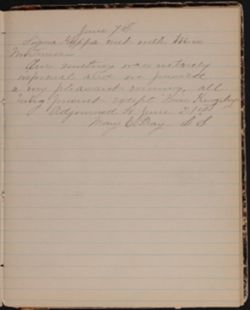 June 7th
Sigma Kappa met with Miss
Our meeting was entirely
informal and we passed
a very pleasant evening, all
being present except Miss Kingsley
Adjourned to June 21st
Mary E. Bray